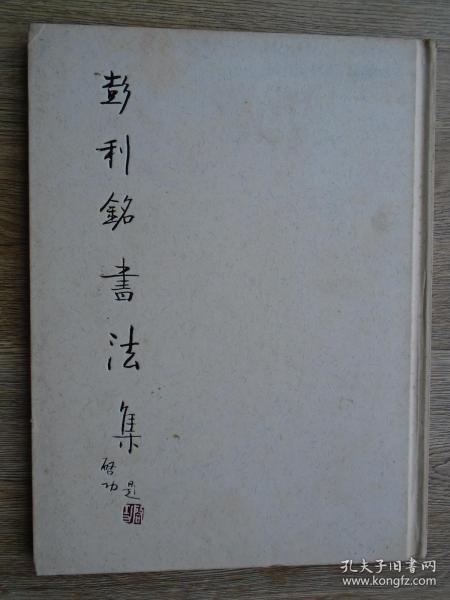 彭利銘書法集
啓功是
孔夫子旧书网
www.kongfz.com